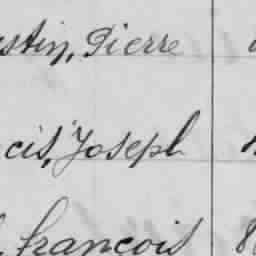 estin, Pierre
cis, Joseph
François